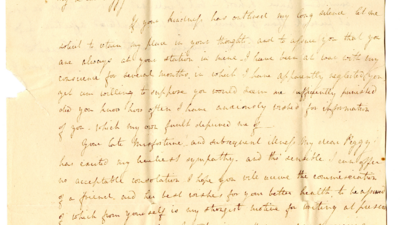 If your kindness, has outlived my long silence let me
solicit to retain my place in your thought, and to assure you that you
are always at your station in mine. I have been at war with my
conscience for several months, in which I have apparently neglected you
yet am willing to suppose you would deem me sufficiently punished
did you know how often I have anxiously wished for information
of you, which my own fault deprived me of
Your late misfortune, and subsequent illness my dear Peggy
has excited my heartfelt sympathy, and tho' sensible I can offer
no acceptable consolation I hope you will receive the commiseration
of a friend, and her best wishes for your better health to be apprised
of which from yourself is my strongest motive for writing at present